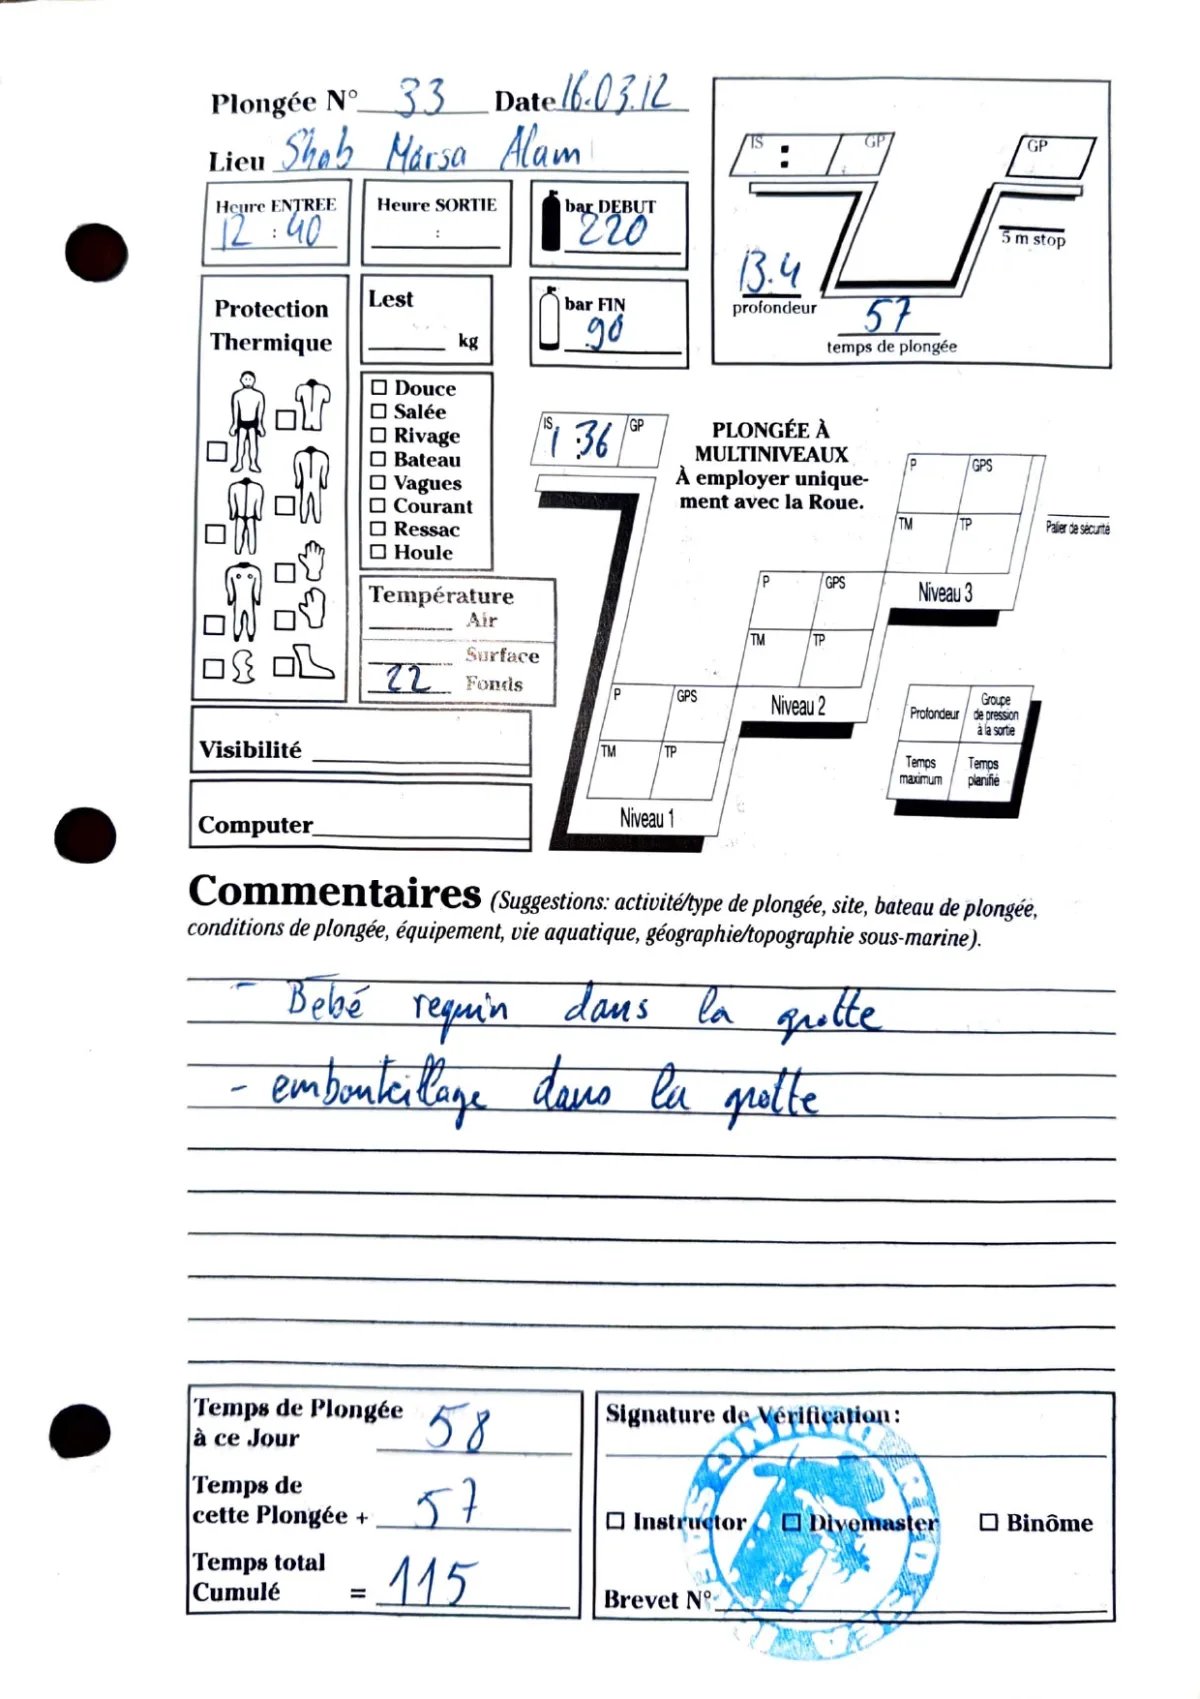 Plongée N° 33 Date 16.03.12
Lieu Shab Marsa Alam
Heure ENTREE
12 : 40
Heure SORTIE
:
bar DEBUT
220
bar FIN
90
IS : GP
GP
5 m stop
13.4
profondeur
57
temps de plongée
Protection
Thermique
Lest
kg
Douce
Salée
Rivage
Bateau
Vagues
Courant
Ressac
Houle
Température
Air
Surface
22 Fonds
Visibilité
Computer
IS 1 36 GP
PLONGÉE À
MULTINIVEAUX
À employer unique-
ment avec la Roue.
P GPS
TM TP
Niveau 1
P GPS
TM TP
Niveau 2
P GPS
TM TP
Niveau 3
Palier de sécurité
Profondeur
Groupe
de pression
à la sortie
Temps
maximum
Temps
planifié
Commentaires (Suggestions: activité/type de plongée, site, bateau de plongée,
conditions de plongée, équipement, vie aquatique, géographie/topographie sous-marine).
- Bébé requin dans la grotte
- embouteillage dans la grotte
Temps de Plongée
à ce Jour 58
Temps de
cette Plongée + 57
Temps total
Cumulé = 115
Signature de Vérification:
Instructor Divemaster Binôme
Brevet N°